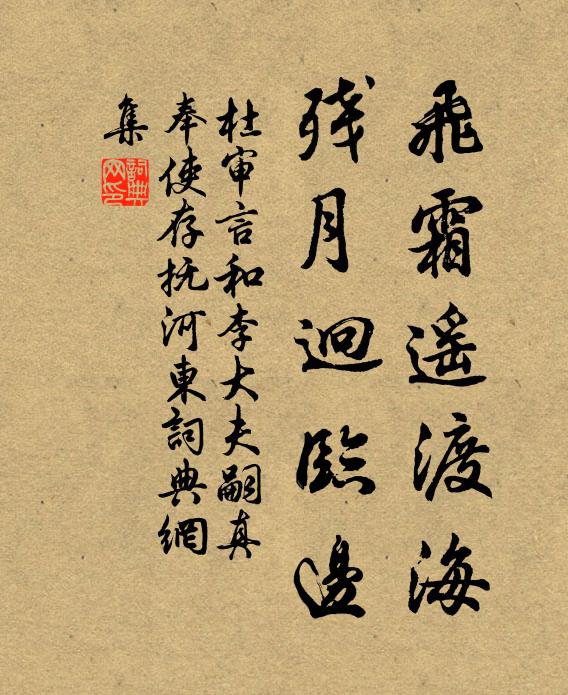 飛霜遥渡海
残月迥臨邊
杜审言和李大夫嗣真
奉使存抚河東詞典網
集
詞典网印